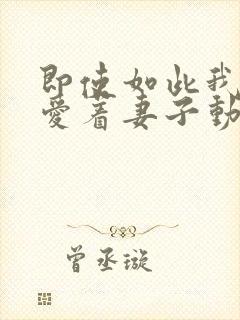 即使如此我
爱着妻子動
曾丞璇